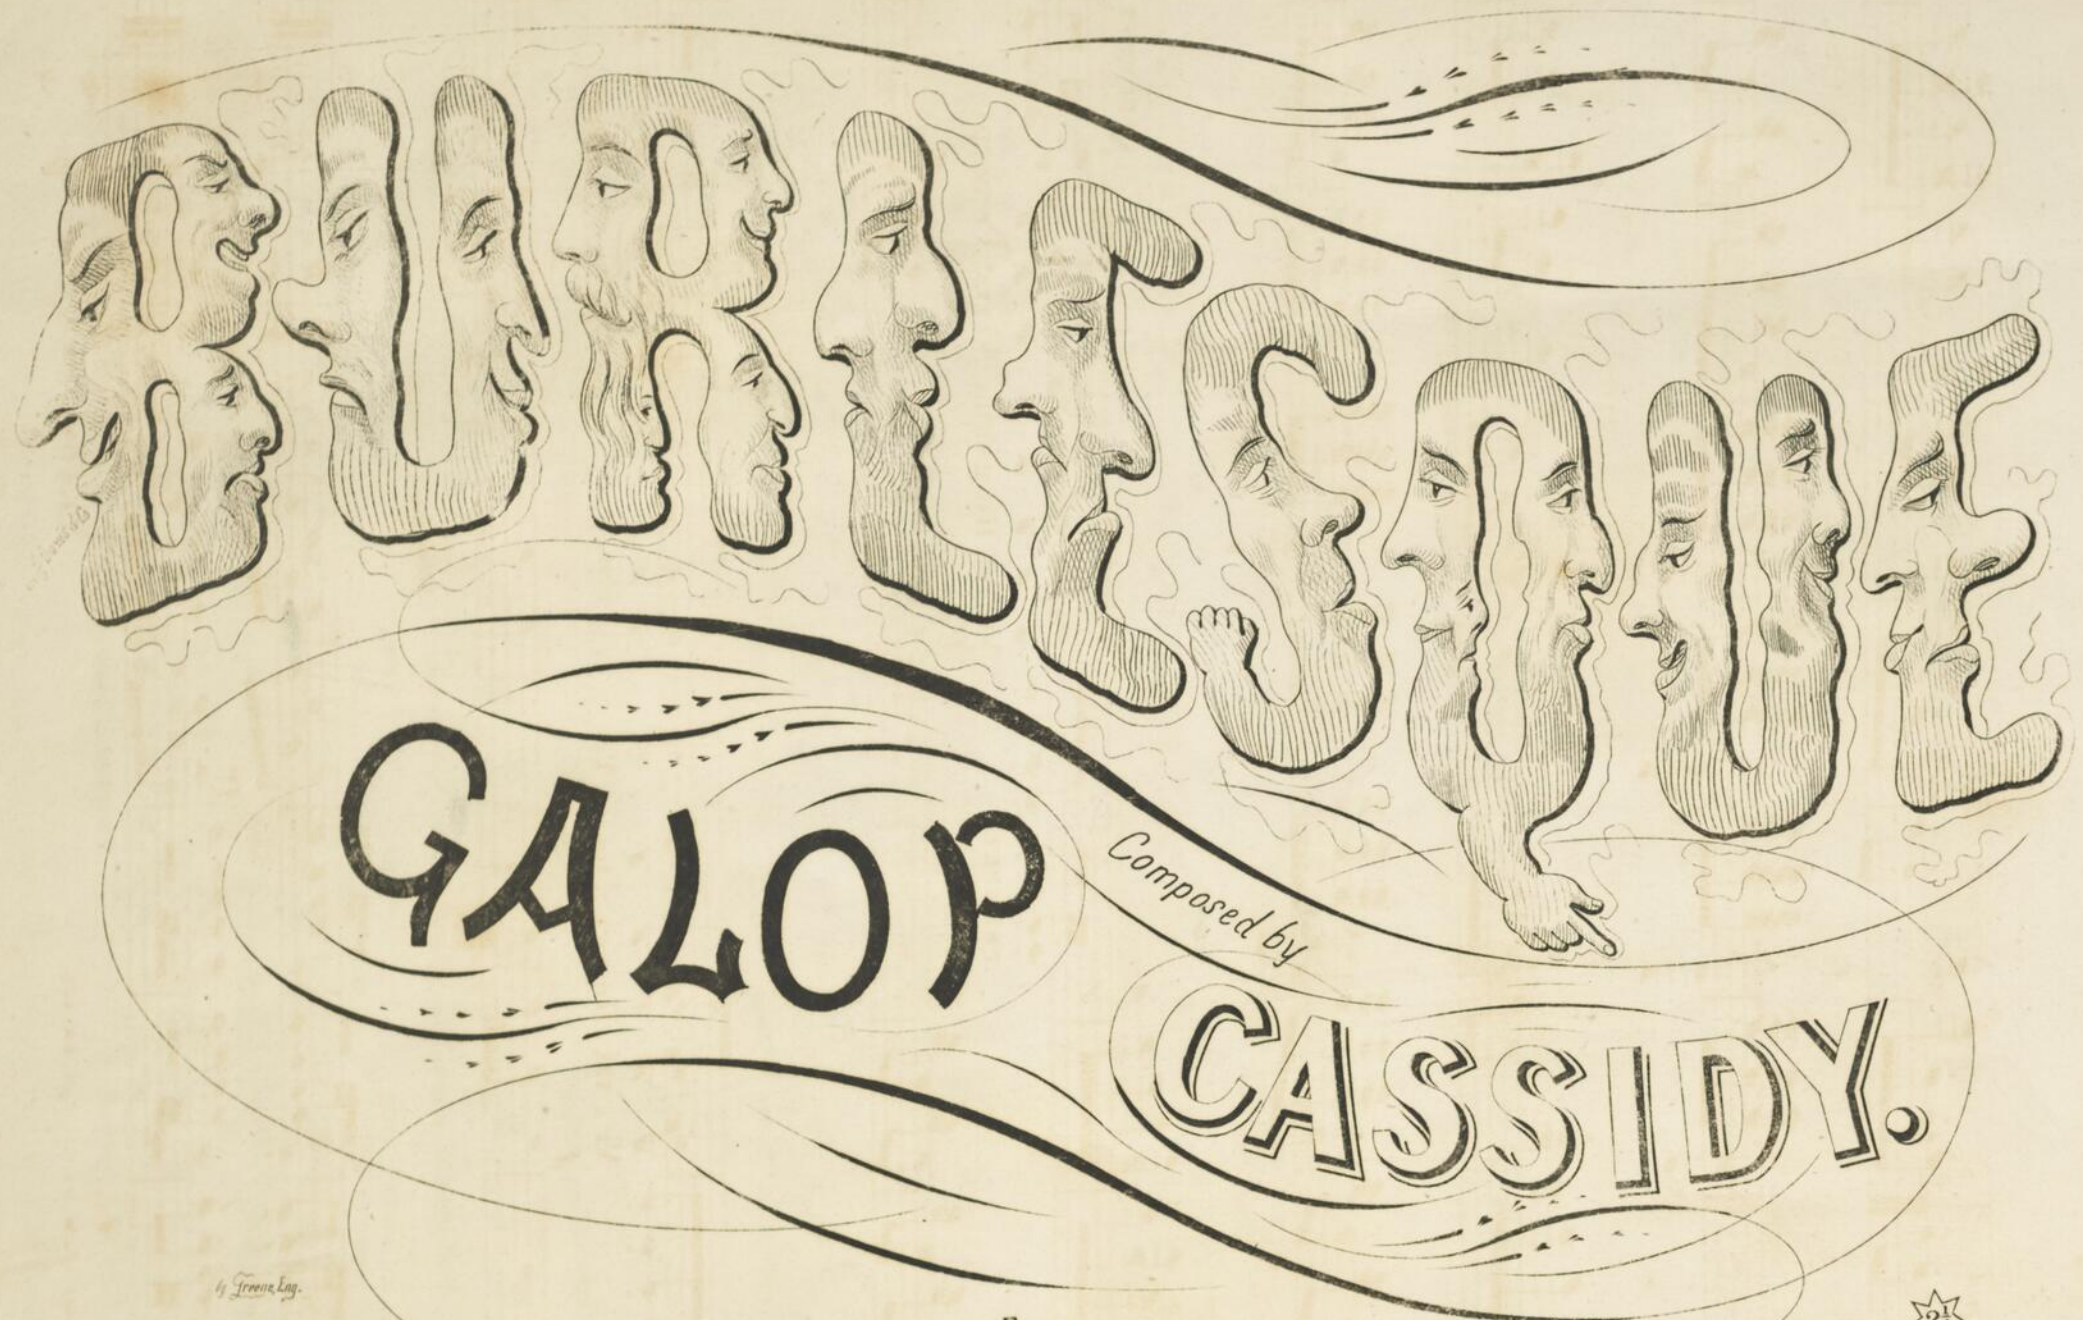 BURLESQUE
GALOP
Composed by
CASSIDY.
by Greene, Eng.
2½